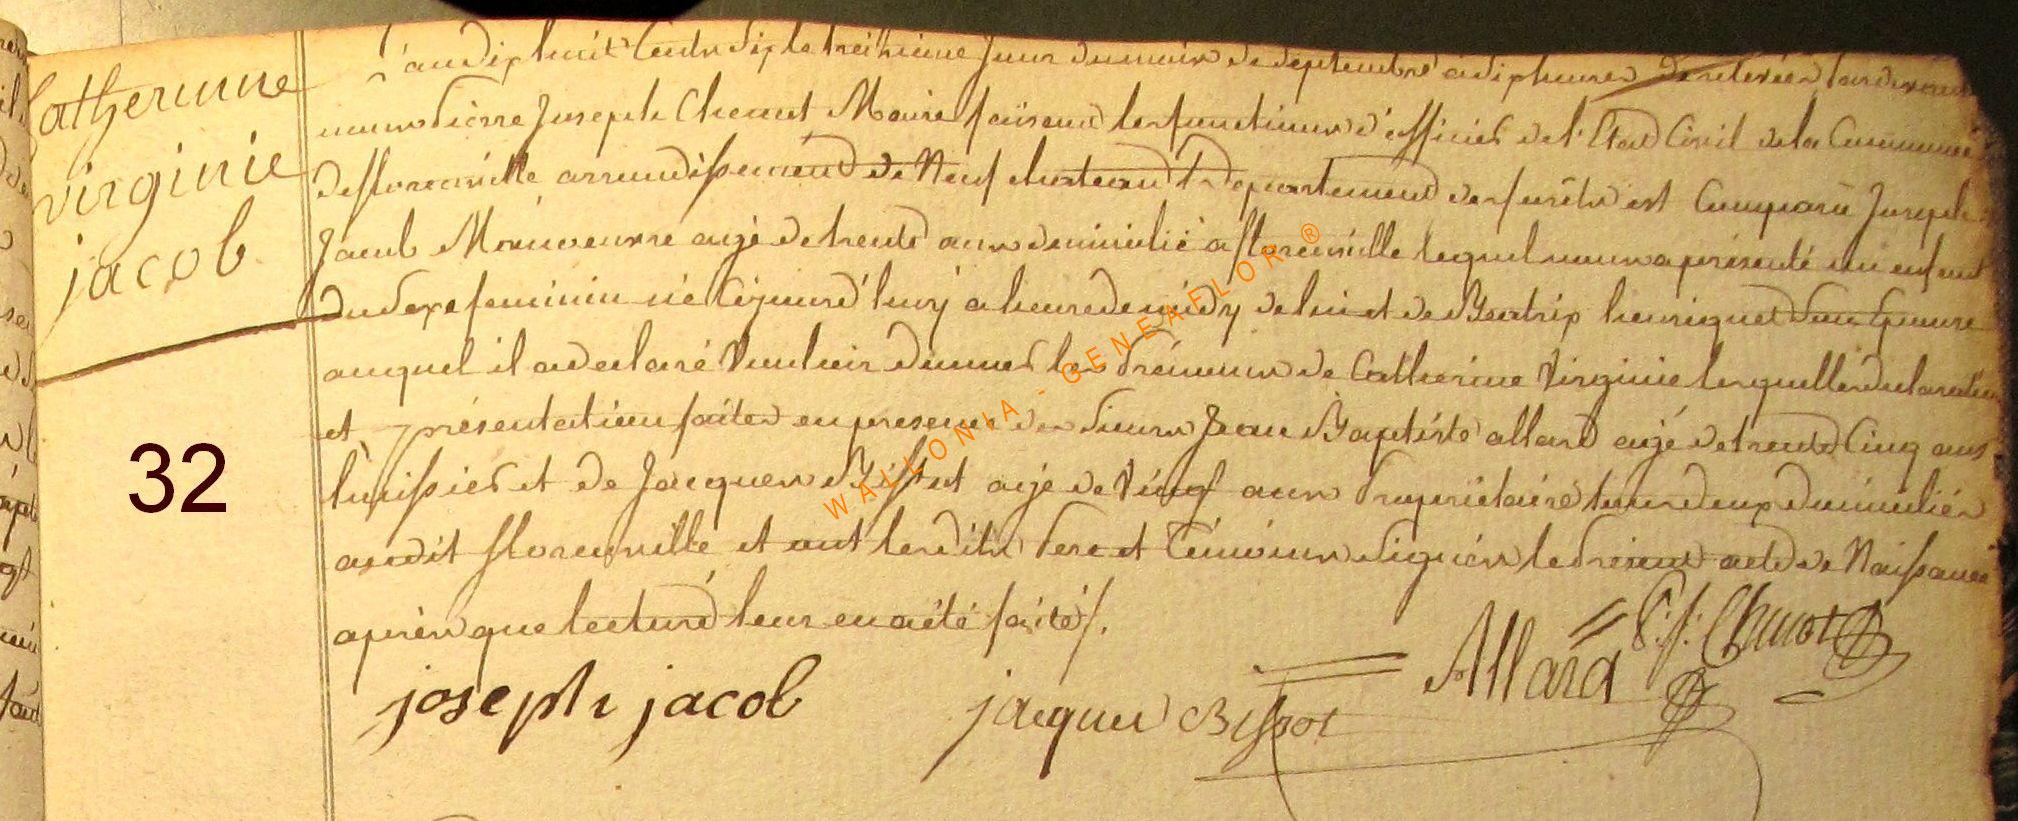 Catherinne
virginie
jacob
32
L'an dix huit Cents dix le treizieme Jour du mois de Septembre a dix heures de relevée par devant
nous Pierre Joseph Chenot Maire faisant les fonctions d'officier de l'Etat Civil de la Commune
de florenville arrondissement de Neufchateau Departement des forêts est Comparu Joseph
Jacob Manoeuvre agé de trente ans domicilié a florenville lequel nous a présenté un enfant
du Sexe feminin né Cejourd'huy a heure de midy de lui et de Beatrix henriquet Son Epouse
auquel il a declaré Vouloir donner les Prénoms de Catherine Virginie lesquelles declaration
et présentation faites en presence des Sieurs Jean Baptiste allard agé de trente Cinq ans
huissier et de Jacques Bissot agé de Vingt ans Propriétaire tous deux domiciliés
audit florenville et ont lesdits Pere et Témoins Signés le Present acte de Naissance
après que lecture leur en a été faite /.
joseph jacob
jacques Bissot
Allard
P. J. Chenot
WALLONIA - GENEAFLOR ®